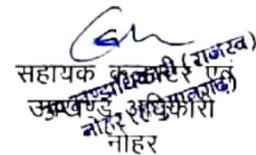 सहायक कलक्टर एवं
उपखण्ड अधिकारी
नोहर
उपखण्ड अधिकारी (राजस्व)
नोहर (हनुमानगढ़)